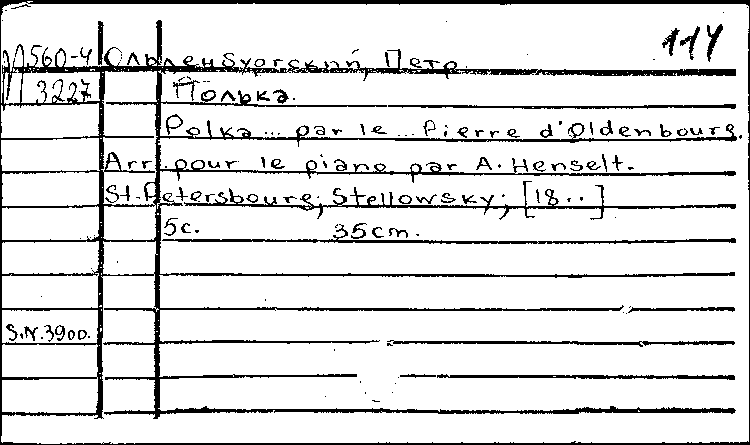 114
M560-4 Ольденбургский, Петр.
M 3227 Полька.
Polka... par le... Pierre d'Oldenbourg.
Arr. pour le piano par A. Henselt.
St. Petersbourg; Stellowsky; [18..]
5c. 35cm.
S.N.3900.